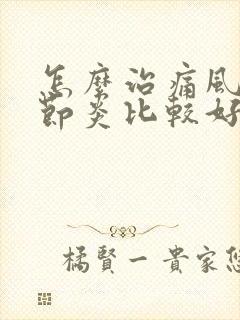 怎麼治痛風
節炎比較好
橘賢一貴家您